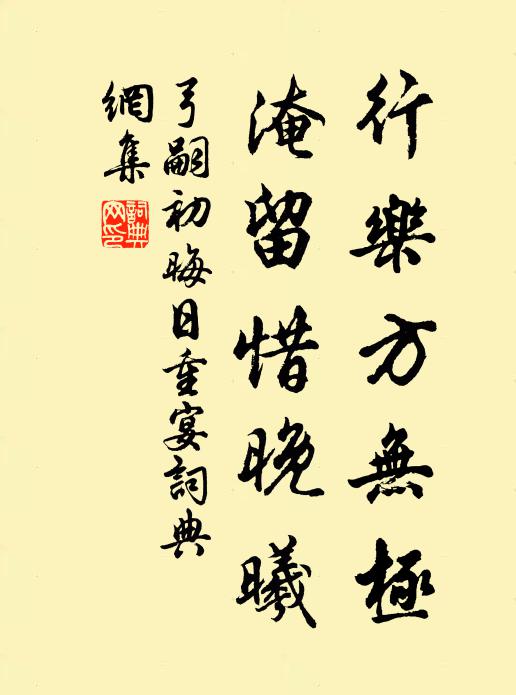 行樂方無極
淹留惜晚曦
弓嗣初晦日重宴詞典
網集
詞典
网印